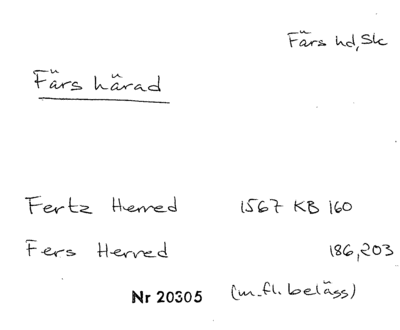 Färs hd, Sk
Färs härad
Fertz Herred 1567 KB 160
Fers Herred 186, 203
Nr 20305 (m. fl. belägg)